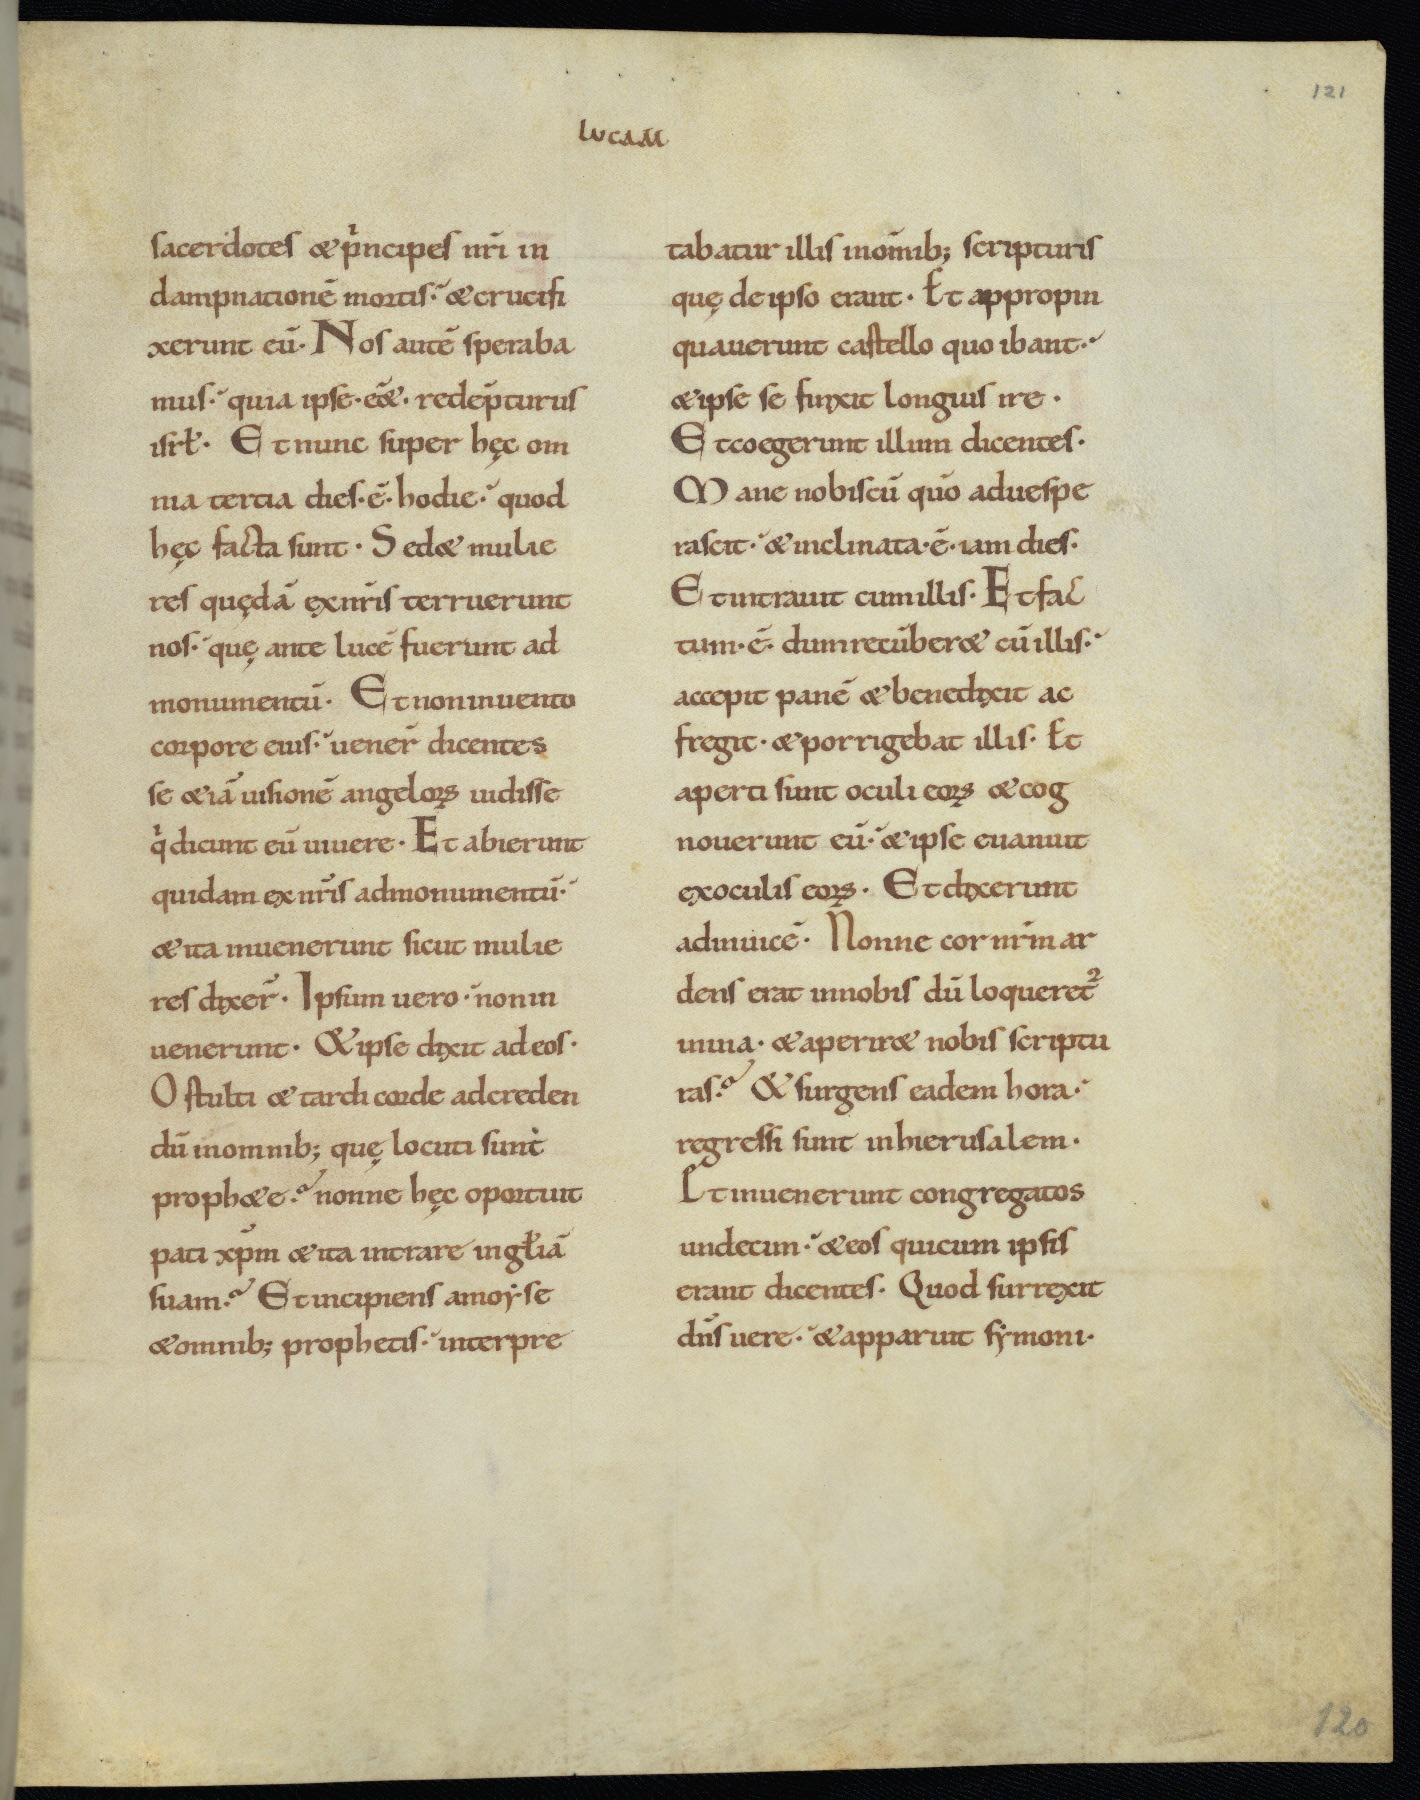 121
lucam
sacerdotes & p̍ncipes nr̄i in
dampnationē mortis. & crucifi
xerunt eū. Nos autē speraba
mus. quia ipse. eē&. redēpturus
isrł. Et nunc super hęc om
nia tertia dies. ē. hodie. quod
hęc facta sunt. Sed & mulie
res quędā ex nr̄is terruerunt
nos. quę ante lucē fuerunt ad
monumentū. Et non inuento
corpore eius. uener̄ dicentes
se &iā uisionē angeloꝝ uidisse
q̍ dicunt eū uiuere. Et abierunt
quidam ex nr̄is ad monumentū.
& ita inuenerunt sicut mulie
res dixer̄. Ipsum uero. non in
uenerunt. & ipse dixit ad eos.
O stulti & tardi corde ad creden
dū in omnib; quę locuti sunt
proph&e. nonne hęc oportuit
pati xp̄m & ita intrare in głiā
suam. Et incipiens a moẏse
& omnib; prophetis. interpre
tabatur illis in om̄ib; scripturis
quę de ipso erant. Et appropin
quauerunt castello quo ibant.
& ipse se finxit longius ire.
Et coegerunt illum dicentes.
Mane nobiscū quō aduespe
rascit. & inclinata. ē. iam dies.
Et intrauit cum illis. Et fac
tum. ē. dum recūber& cū illis.
accepit panē & benedixit ac
fregit. & porrigebat illis. Et
aperti sunt oculi eoꝝ & cog
nouerunt eū. & ipse euanuit
ex oculis eoꝝ. Et dixerunt
adinuicē. Nonne cor nr̄m ar
dens erat in nobis dū loqueret᷑
in uia. & aperir& nobis scriptu
ras. & surgens eadem hora.
regressi sunt in hierusalem.
Et inuenerunt congregatos
undecim. & eos qui cum ipsis
erant dicentes. Quod surrexit
dn̄s uere. & apparuit sẏmoni.
120